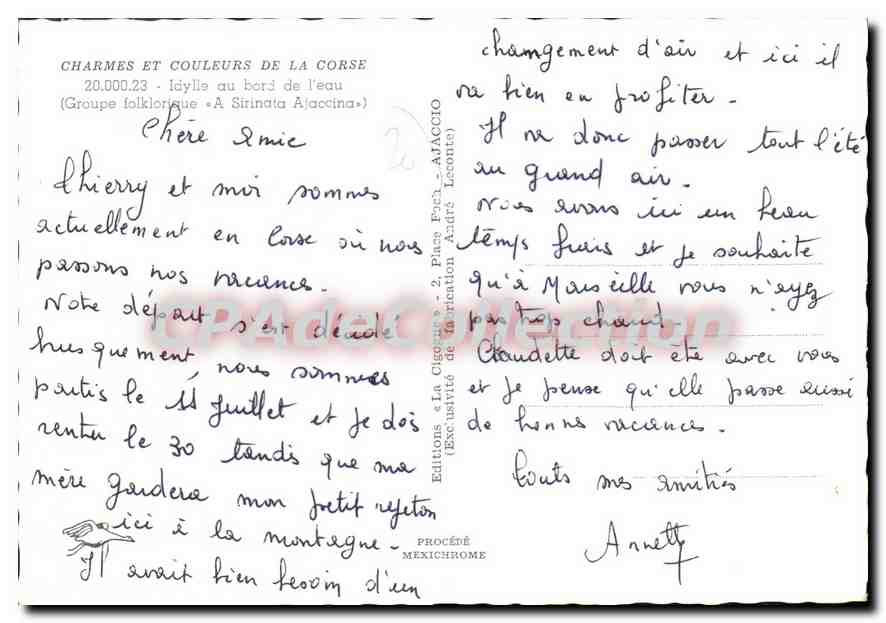 CHARMES ET COULEURS DE LA CORSE
20.000.23 - Idylle au bord de l'eau
(Groupe folklorique «A Sirinata Ajaccina»)
Chère Amie
Thierry et moi sommes
actuellement en Corse où nous
passons nos vacances.
Notre départ s'est décidé
brusquement, nous sommes
partis le 11 Juillet et je dois
rentrer le 30 tandis que ma
mère gardera mon petit rejeton
ici à la montagne.
Il avait bien besoin d'un
changement d'air et ici il
va bien en profiter.
Il va donc passer tout l'été
au grand air.
Nous avons ici un beau
temps frais et je souhaite
qu'à Marseille vous n'ayez
pas trop chaud.
Claudette doit être avec vous
et je pense qu'elle passe aussi
de bonnes vacances.
Touts mes amitiés
Annette
Editions «La Cigogne» - 2, Place Foch - AJACCIO
(Exclusivité de fabrication André Leconte)
PROCÉDÉ
MEXICHROME
CPAdeCollection